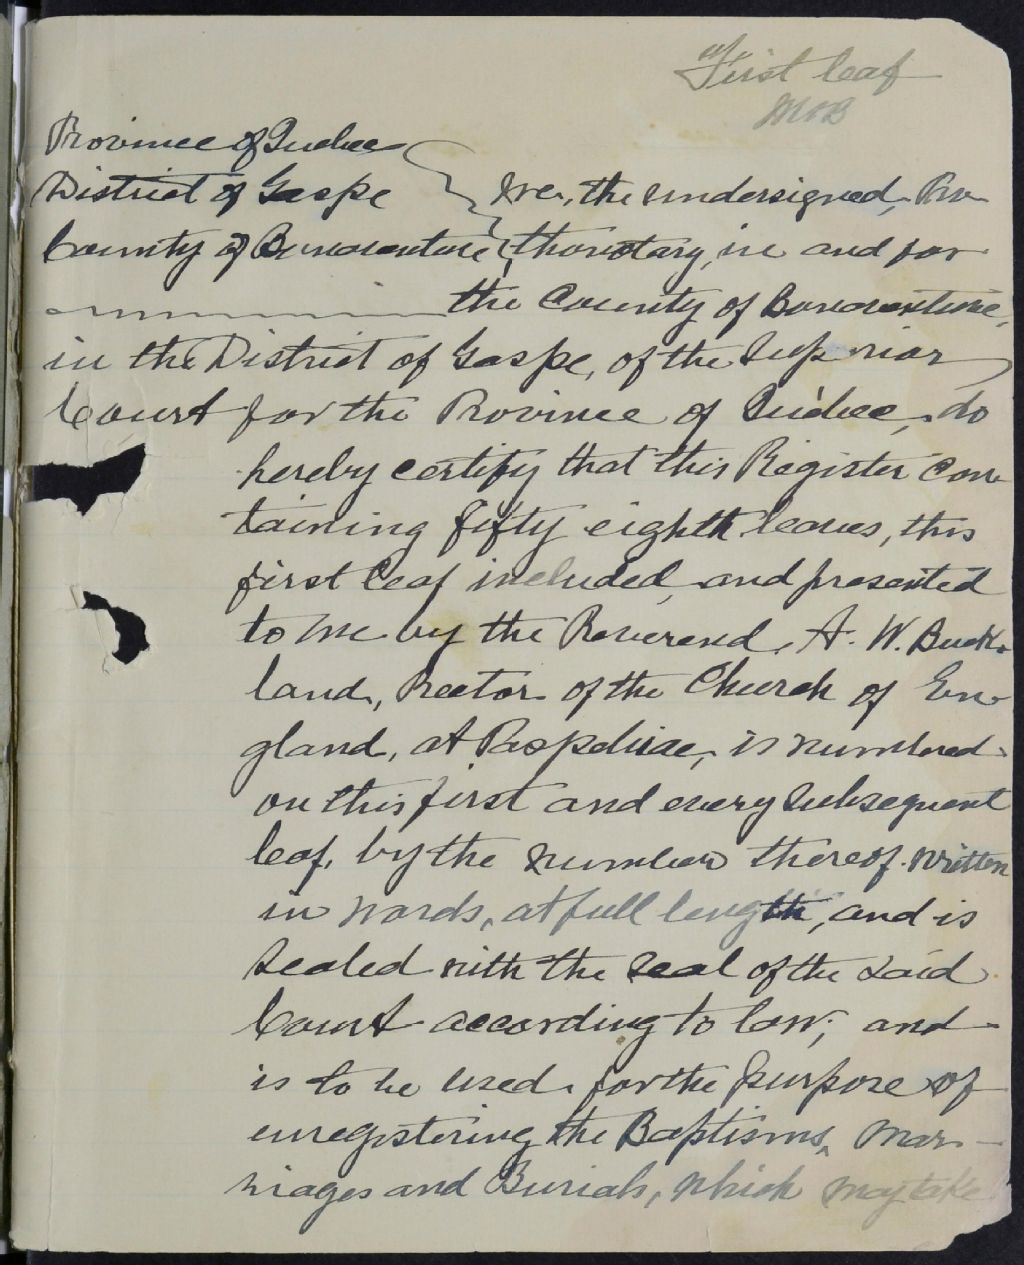 "First leaf
MOB
Province of Quebec
District of Gaspe We, the undersigned, Pro-
County of Bonaventure thonotary, in and for
the County of Bonaventure,
in the District of Gaspe, of the Superior
Court for the Province of Quebec, do
hereby certify that this Register con-
taining fifty eighth leaves, this
first leaf included, and presented
to me by the Reverend. A. W. Buck-
land, Rector of the Church of En-
gland, at Paspebiac, is numbered
on this first and every subsequent
leaf, by the number thereof written
in words, at full length, and is
sealed with the seal of the said
Court according to law; and
is to be used for the purpose of
enregistering the Baptisms, Mar-
riages and Burials, which may take